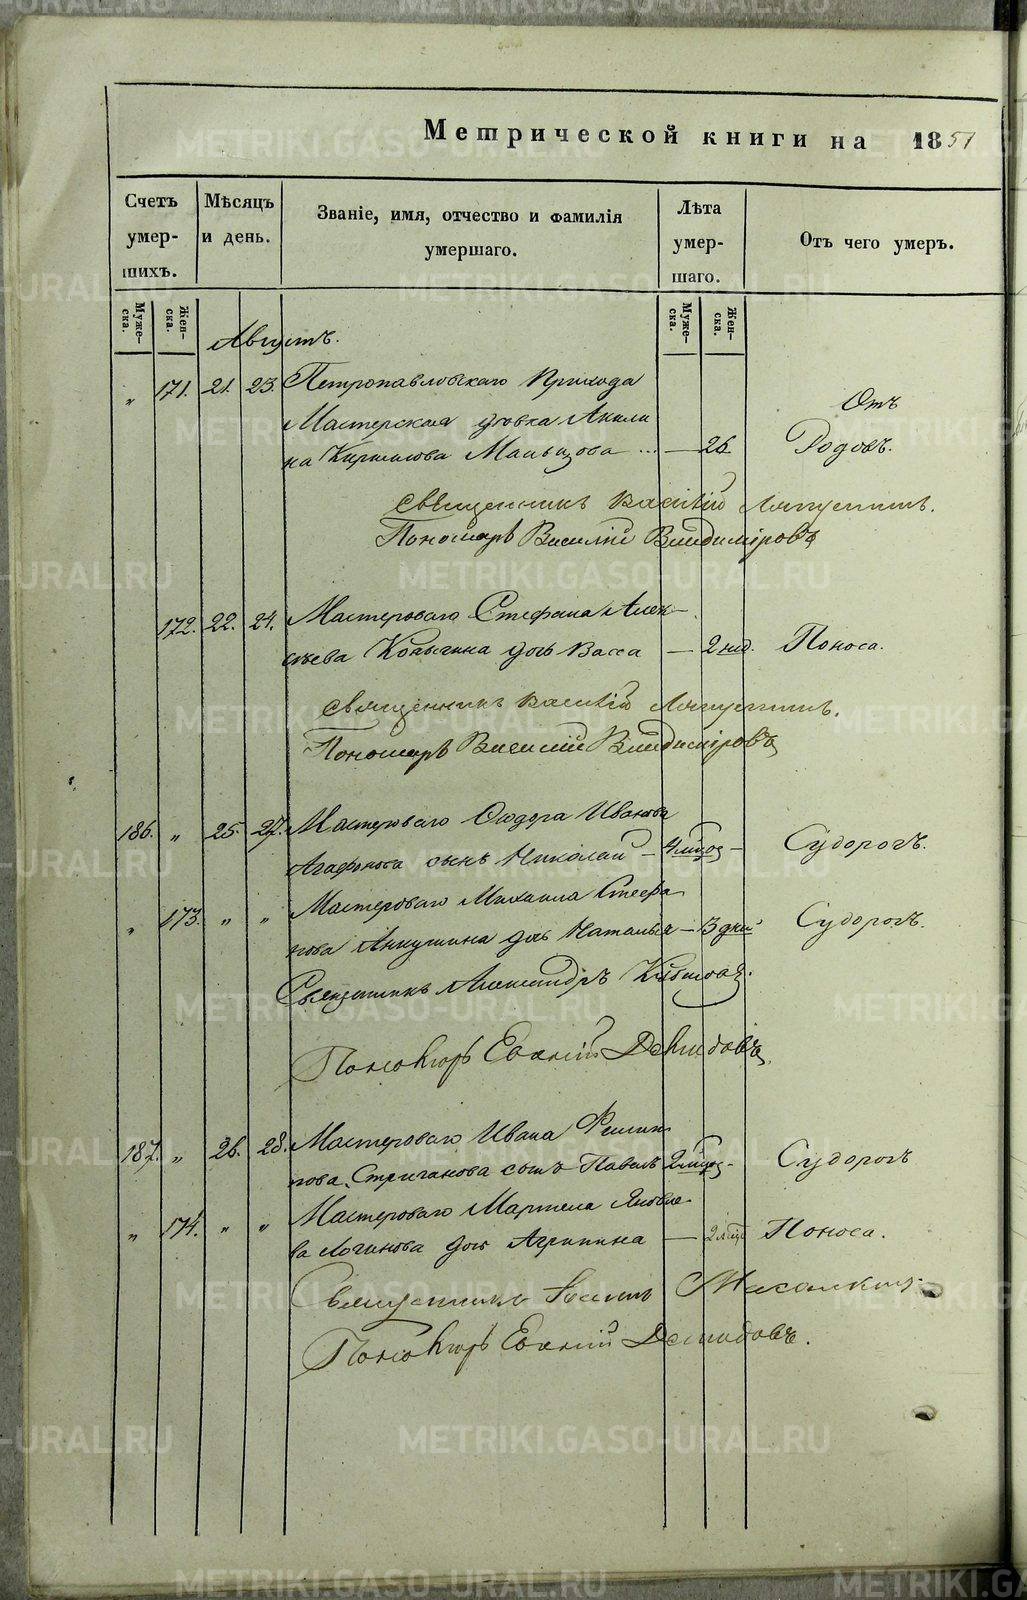 Метрической книги на 1851
Счетъ умер- шихъ.
Мѣсяцъ и день.
Званіе, имя, отчество и фамилія умершаго.
Лѣта умер- шаго.
Отъ чего умеръ.
Муже- ска. Жен- ска. Муже- ска. Жен- ска.
Августъ.
„ 171. 21. 23. Петропавловскаго Прихода
Мастерская дѣвка Акили
на Кирилова Мальцова ... — 26 Отъ Родовъ.
Священникъ Василій Ляпустинъ.
Пономарь Василій Владиміровъ
172. 22. 24. Мастероваго Стефана Алек-
сѣева Копыгина дочь Васса — 2 нед. Поноса.
Священникъ Василій Ляпустинъ.
Пономарь Василій Владиміровъ
186. „ 25. 27. Мастероваго Ѳедора Иванова
Агафонова сынъ Николай — Судорогъ.
„ 173. „ „ Мастероваго Михаила Стефа
нова Аникушина дочь Наталья — 13 дней Судорогъ.
Священникъ Александръ
Пономарь Евхній Демидовъ
187. „ 26. 28. Мастероваго Ивана Филип
пова Стриганова сынъ Павелъ Судорогъ
„ 174. „ „ Мастероваго Яковле-
ва Логинова дочь Агрипина — Поноса.
Священникъ
Пономарь Евхній Демидовъ.
METRIKI.GASO-URAL.RU